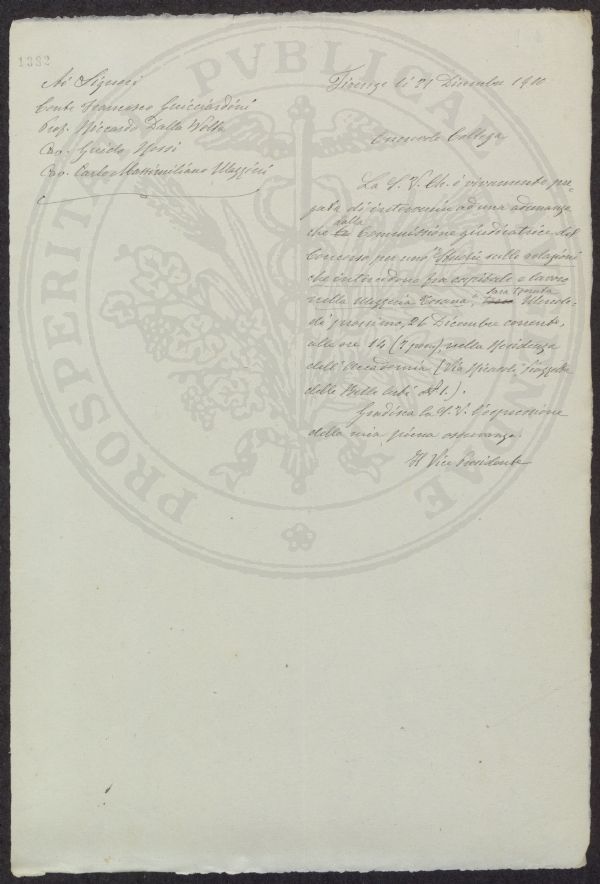 1382
Ai Signori
Conte Francesco Guicciardini
Prof. Riccardo Dalla Volta
Cav. Guido Rossi
Cav. Carlo Massimiliano Mazzini
Firenze li 21 Dicembre 1910
Onorevole Collega
La S. V. Ill. è vivamente pre-
gata di intervenire ad una adunanza
che dalla Commissione giudicatrice del
Concorso per uno "Studio sulle relazioni
che intercedono fra capitale e lavoro
nella Mezzeria Toscana", sarà tenuta Mercole-
dì prossimo, 26 Dicembre corrente,
alle ore 14 (2 pom), nella Residenza
dell'Accademia (Via Ricasoli, Piazzetta
delle Belle Arti N° 1.).
Gradisca la S. V. l'espressione
della mia piena osservanza.
Il Vice Presidente
PROSPERITATI PVBLICAE